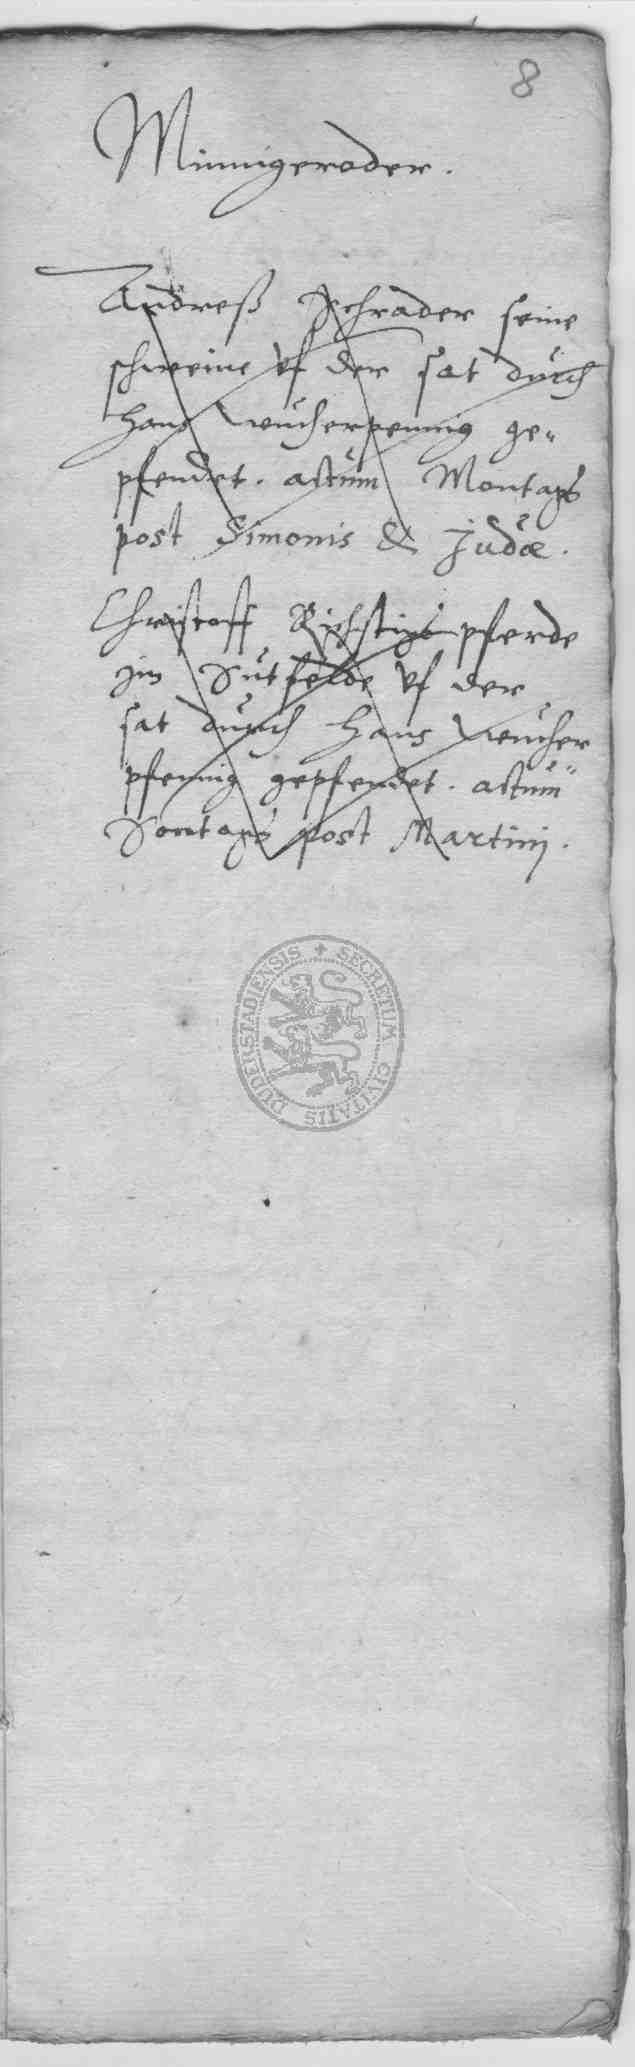 8
Minnigeroder.
Andreß Schrader seine
schweine vf der sat durch
Hans Wucherpennig ge„
pfendet. actum Montags
post Simonis & Judæ.
Christoff pferde
im Sutfelde vf der
sat durch Hans Wucher
pfennig gepfendet. actum
Sontags post Martinj.
SECRETUM CIVITATIS DUDERSTADIENSIS